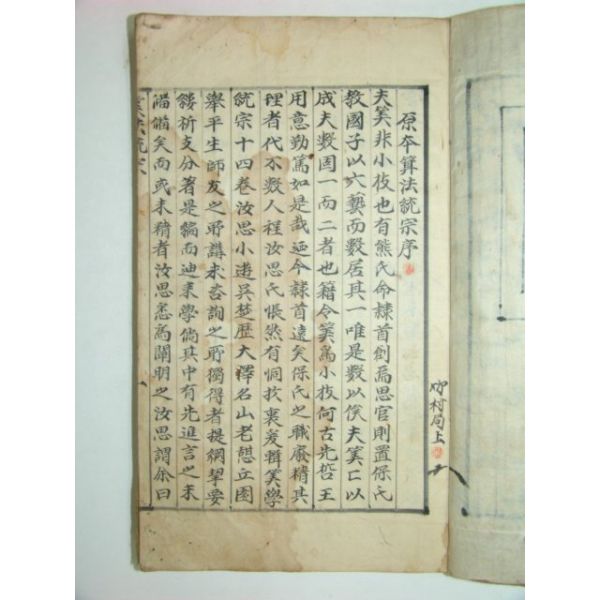 原本算法統宗序
夫筭非小技也有熊氏命隸首創焉思官則置保氏
教國子以六藝而數居其一唯是數以俟夫筭亡以
成夫數固一而二者也籍令筭爲小技何古先哲王
用意勤篤如是哉逓今隸首遠矣保氏之職廢精其
理者代不數人程汝思氏悵然有恫於衷爰輯筭學
統宗十四卷汝思小遊吳楚歷大澤名山老憩丘園
舉平生師友之所講求咨詢之所獨得者提綱挈要
縷析支分著是編而迪來學倘其中有先進言之未
備而或未精者汝思悉爲闡明之汝思謂余曰
村局上